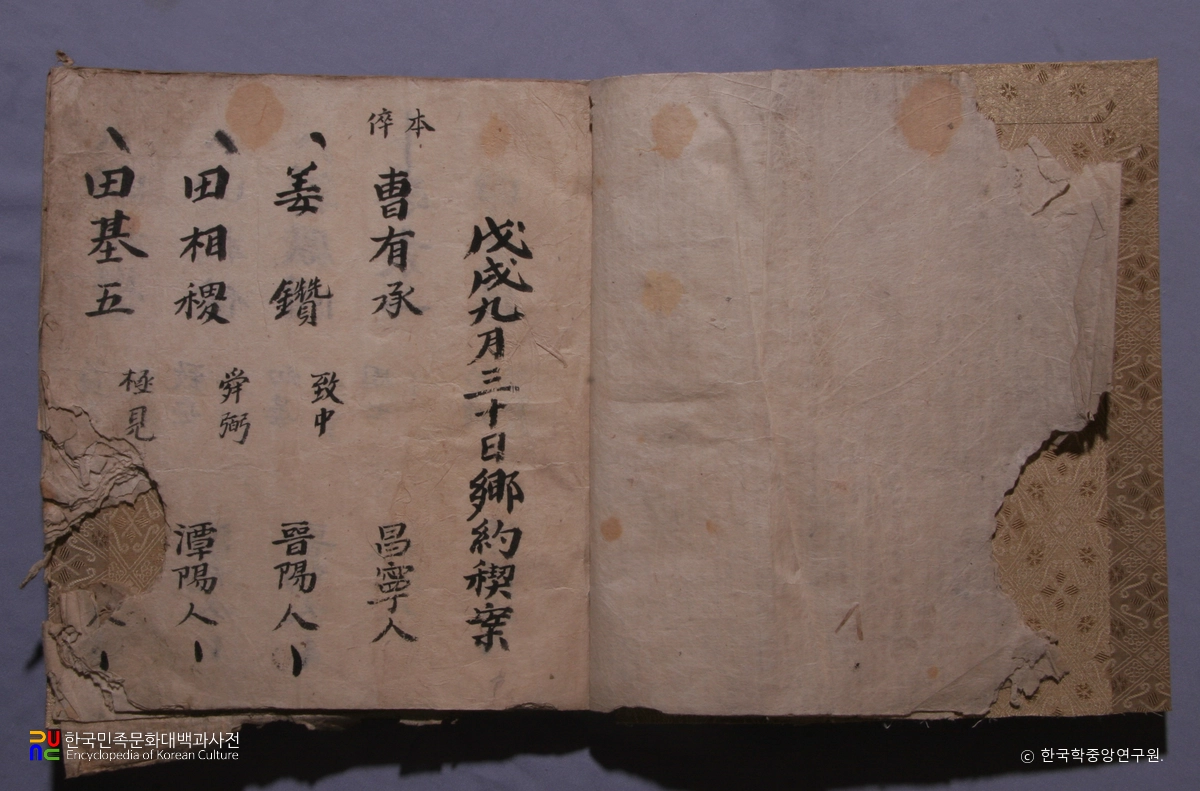 戊戌九月三十日鄉約稧案
本倅 曺有承 昌寧人
丶姜 鑽 致中 晉陽人
丶田相稷 舜弼 潭陽人
丶田基五 極見 人
한국민족문화대백과사전
Encyclopedia of Korean Culture
ⓒ 한국학중앙연구원.